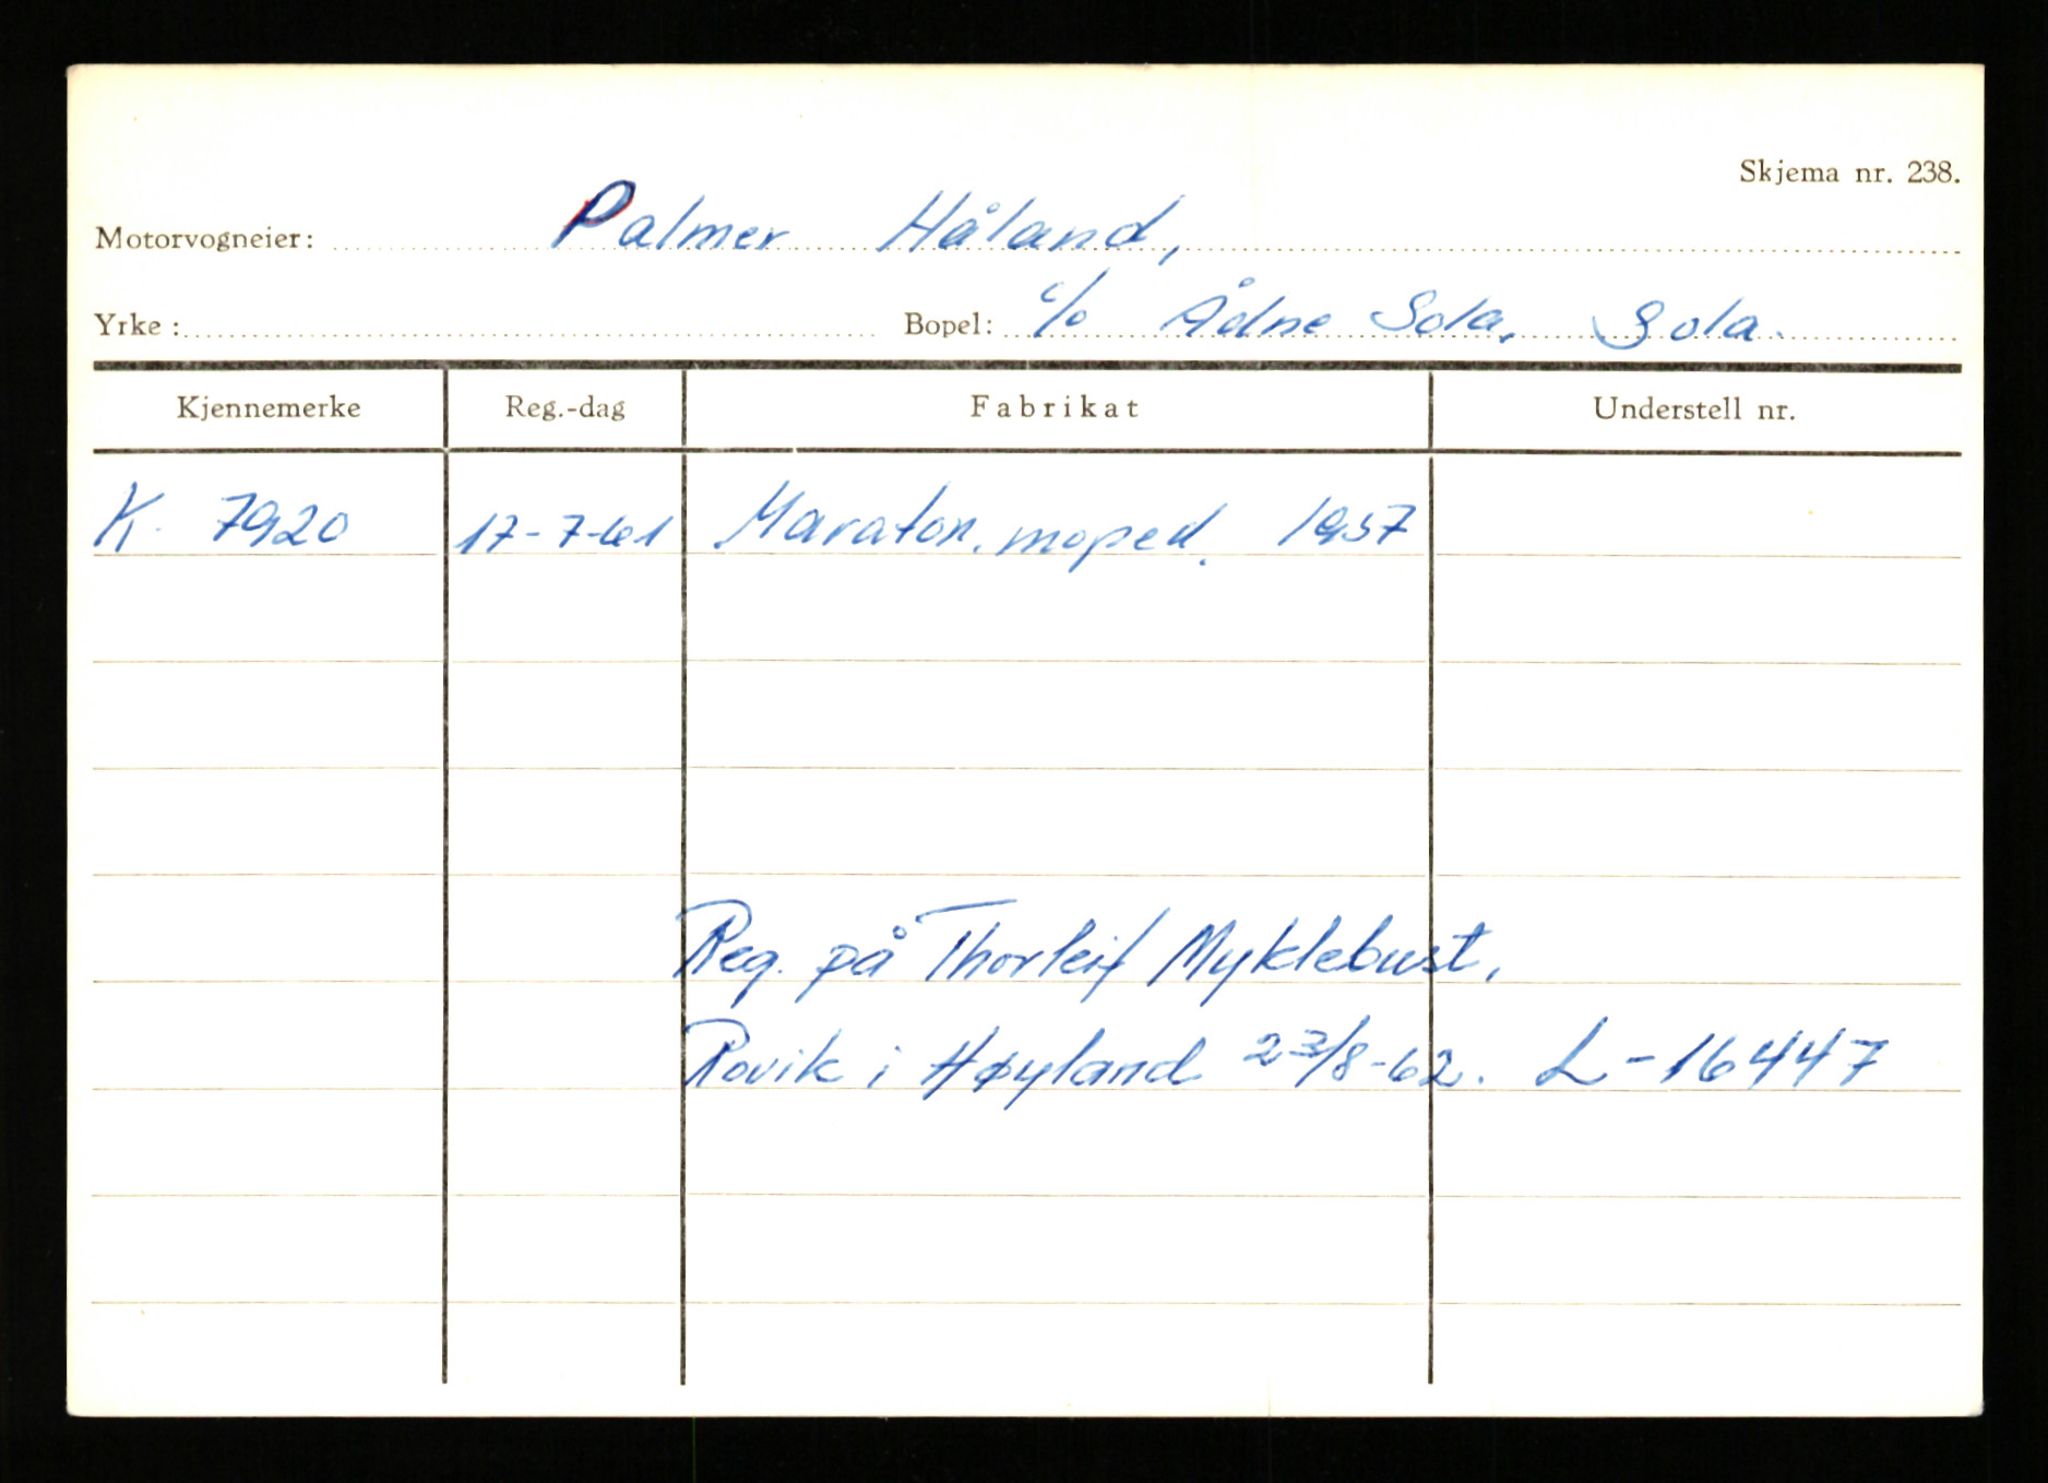 Skjema nr. 238.
Motorvogneier: Palmer Håland,
Yrke: Bopel: c/o Ådne Sola, Sola.
Kjennemerke Reg.-dag Fabrikat Understell nr.
K. 7920 17-7-61 Maraton. moped. 1957
Reg. på Thorleif Myklebust,
Rovik i Høyland 23/8-62. L-16447